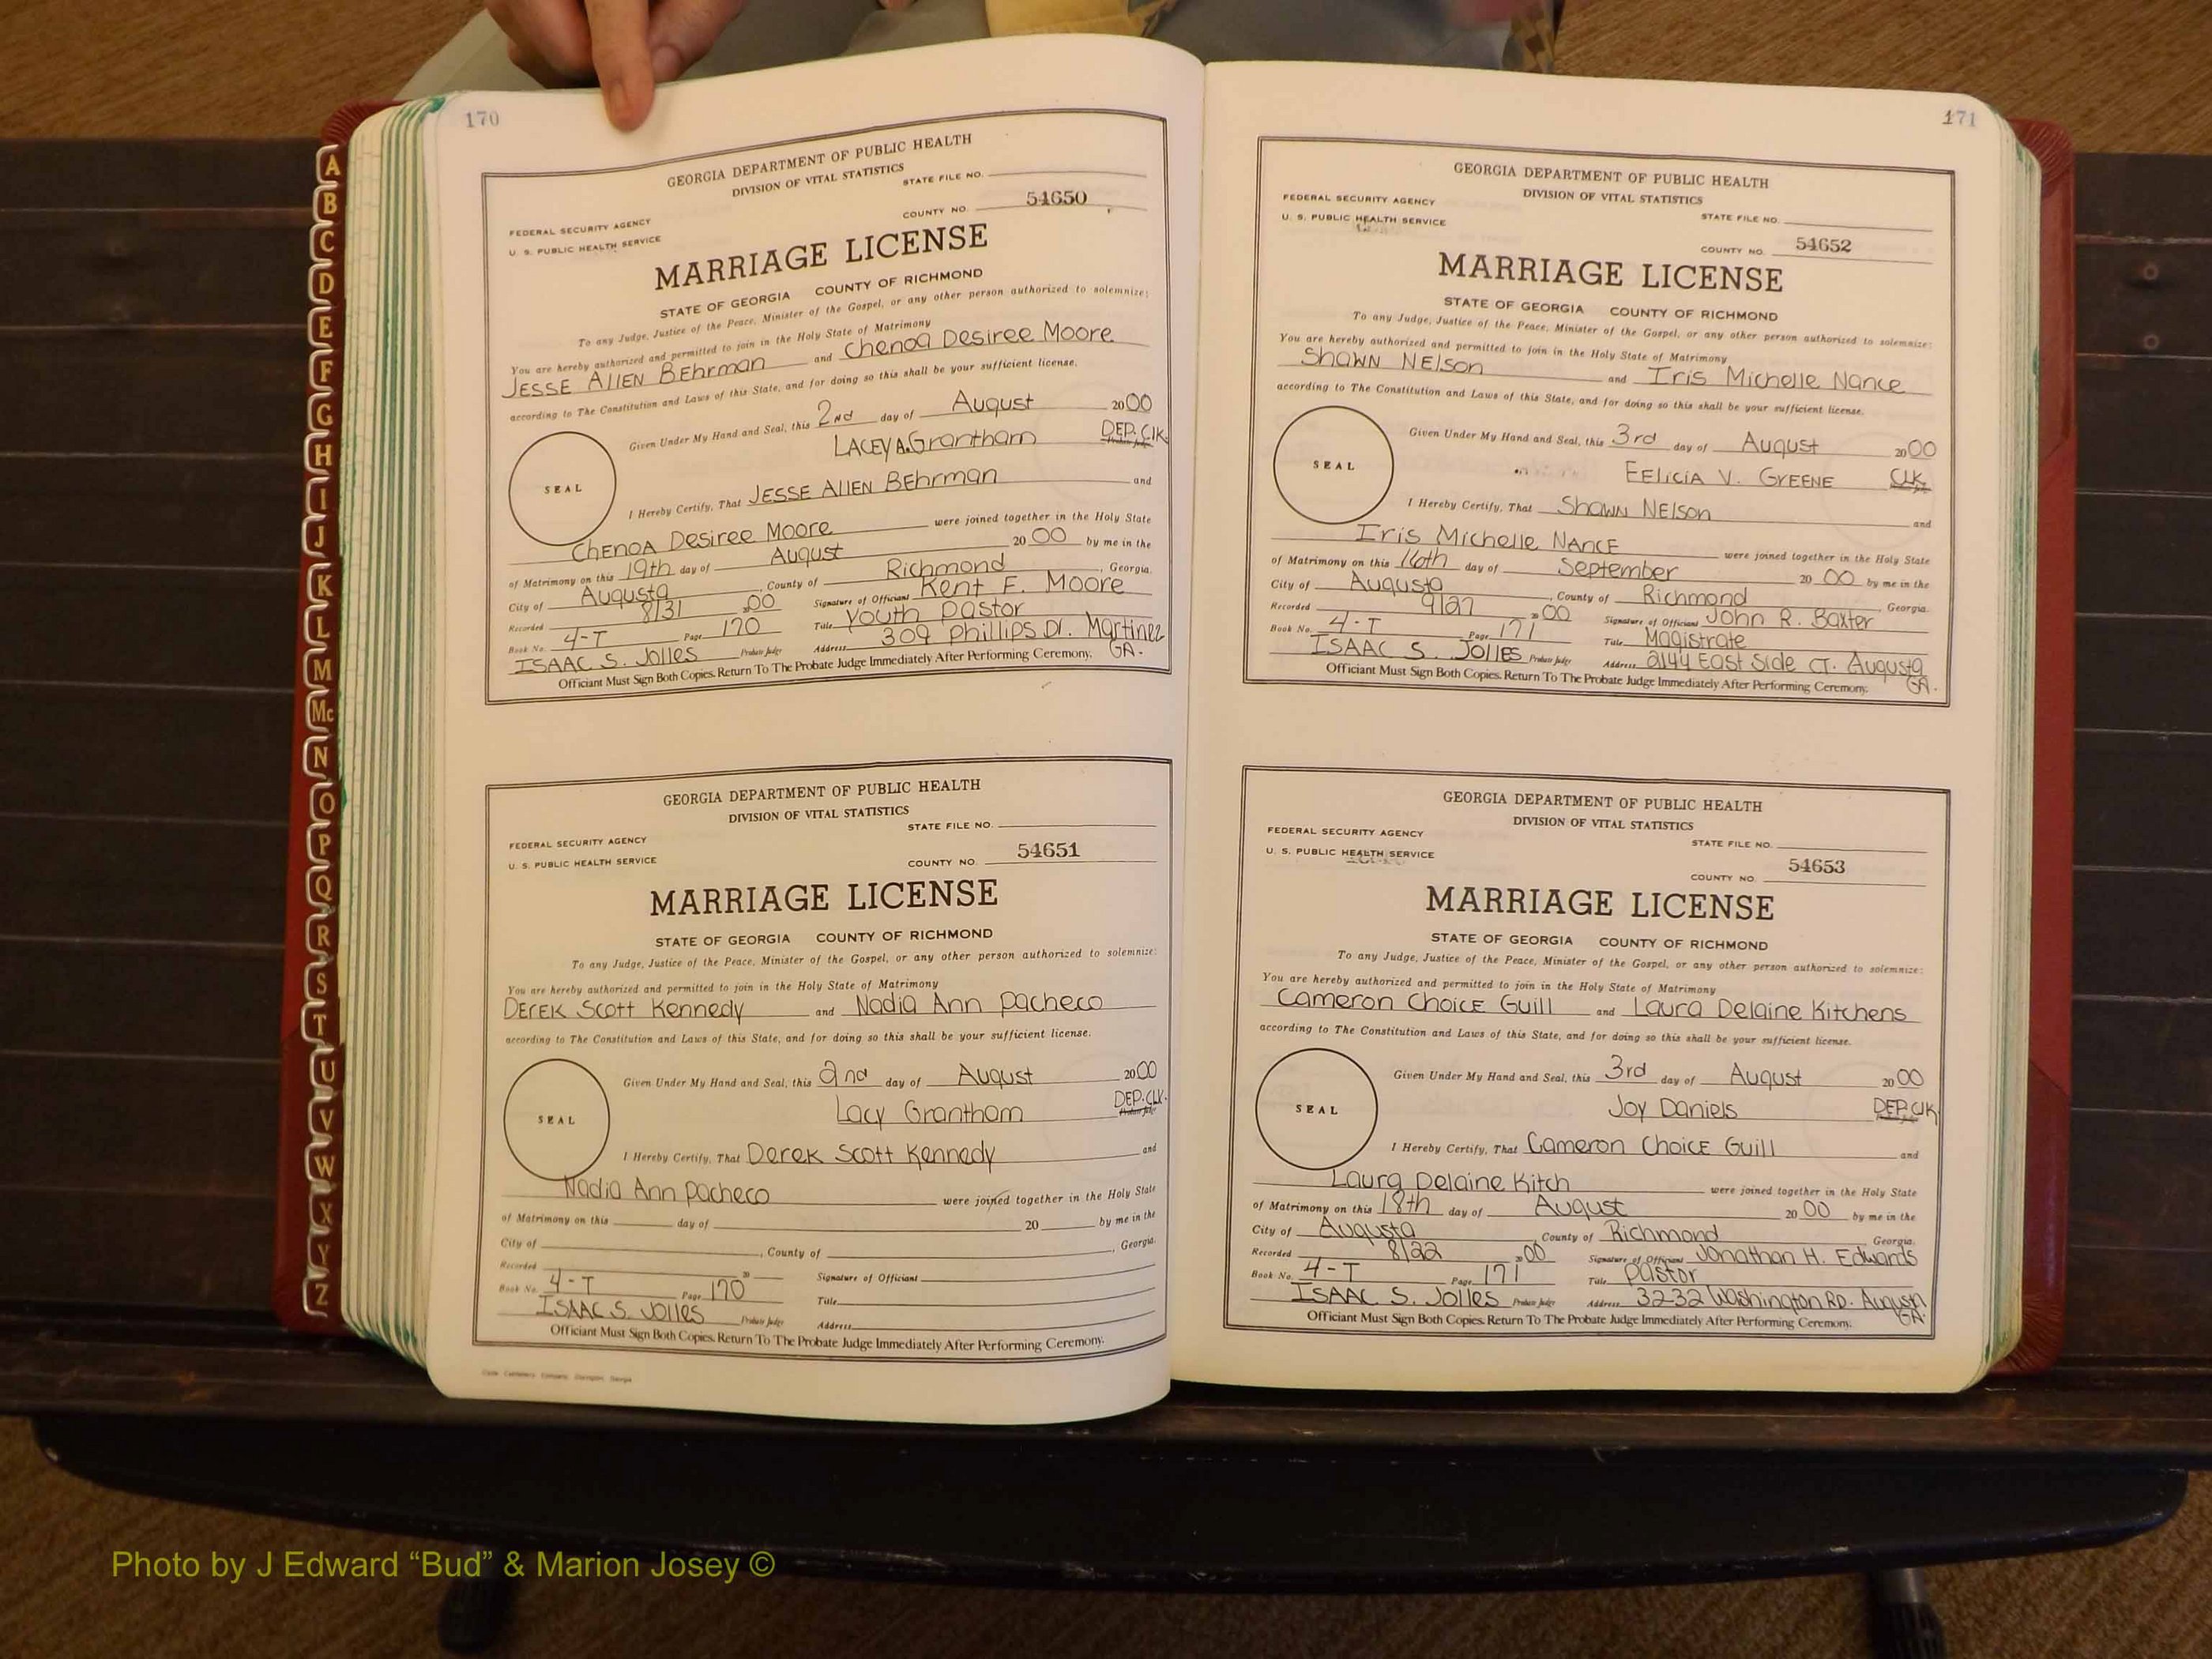 A
B
C
D
E
F
G
H
I
J
K
L
M
Mc
N
O
P
Q
R
S
T
U
V
W
X
Y
Z
170
GEORGIA DEPARTMENT OF PUBLIC HEALTH
DIVISION OF VITAL STATISTICS
STATE FILE NO.
FEDERAL SECURITY AGENCY
U. S. PUBLIC HEALTH SERVICE
COUNTY NO. 54650
MARRIAGE LICENSE
STATE OF GEORGIA COUNTY OF RICHMOND
To any Judge, Justice of the Peace, Minister of the Gospel, or any other person authorized to solemnize:
You are hereby authorized and permitted to join in the Holy State of Matrimony
JESSE AllEN BEhrman and Chenoa Desiree Moore
according to The Constitution and Laws of this State, and for doing so this shall be your sufficient license.
Given Under My Hand and Seal, this 2nd day of August 2000
LACEY A. Grantham DEP. Clk.
SEAL
I Hereby Certify, That JESSE AllEN BEhrman and
ChENOA Desiree Moore were joined together in the Holy State
of Matrimony on this 19th day of August 20 00 by me in the
City of Augusta, County of Richmond, Georgia.
Recorded 8/31 2000 Signature of Officiant Kent F. Moore
Book No. 4-T Page 170 Title Youth Pastor
ISAAC S. Jolles Probate Judge Address 309 Phillips Dr. Martinez GA.
Officiant Must Sign Both Copies. Return To The Probate Judge Immediately After Performing Ceremony.
GEORGIA DEPARTMENT OF PUBLIC HEALTH
DIVISION OF VITAL STATISTICS
STATE FILE NO.
FEDERAL SECURITY AGENCY
U. S. PUBLIC HEALTH SERVICE
COUNTY NO. 54651
MARRIAGE LICENSE
STATE OF GEORGIA COUNTY OF RICHMOND
To any Judge, Justice of the Peace, Minister of the Gospel, or any other person authorized to solemnize:
You are hereby authorized and permitted to join in the Holy State of Matrimony
DEREK Scott Kennedy and Nadia Ann Pacheco
according to The Constitution and Laws of this State, and for doing so this shall be your sufficient license.
Given Under My Hand and Seal, this 2nd day of August 2000
Lacy Grantham DEP. CLK.
SEAL
I Hereby Certify, That Derek Scott Kennedy and
Nadia Ann Pacheco were joined together in the Holy State
of Matrimony on this day of 20 by me in the
City of , County of , Georgia.
Recorded 20 Signature of Officiant
Book No. 4-T Page 170 Title
ISAAC S. Jolles Probate Judge Address
Officiant Must Sign Both Copies. Return To The Probate Judge Immediately After Performing Ceremony.
171
GEORGIA DEPARTMENT OF PUBLIC HEALTH
DIVISION OF VITAL STATISTICS
FEDERAL SECURITY AGENCY
U. S. PUBLIC HEALTH SERVICE
STATE FILE NO.
COUNTY NO. 54652
MARRIAGE LICENSE
STATE OF GEORGIA COUNTY OF RICHMOND
To any Judge, Justice of the Peace, Minister of the Gospel, or any other person authorized to solemnize:
You are hereby authorized and permitted to join in the Holy State of Matrimony
Shawn NElson and Iris Michelle Nance
according to The Constitution and Laws of this State, and for doing so this shall be your sufficient license.
Given Under My Hand and Seal, this 3rd day of August 2000
FElicia V. GrEENE CLK.
SEAL
I Hereby Certify, That Shawn NElson and
Iris Michelle NANCE were joined together in the Holy State
of Matrimony on this 16th day of September 20 00 by me in the
City of Augusta, County of Richmond, Georgia.
Recorded 9/27 2000 Signature of Officiant John R. Baxter
Book No. 4-T Page 171 Title Magistrate
ISAAC S. Jolles Probate Judge Address 2144 East Side CT. Augusta GA.
Officiant Must Sign Both Copies. Return To The Probate Judge Immediately After Performing Ceremony.
GEORGIA DEPARTMENT OF PUBLIC HEALTH
DIVISION OF VITAL STATISTICS
FEDERAL SECURITY AGENCY
U. S. PUBLIC HEALTH SERVICE
STATE FILE NO.
COUNTY NO. 54653
MARRIAGE LICENSE
STATE OF GEORGIA COUNTY OF RICHMOND
To any Judge, Justice of the Peace, Minister of the Gospel, or any other person authorized to solemnize:
You are hereby authorized and permitted to join in the Holy State of Matrimony
Cameron Choice Guill and Laura Delaine Kitchens
according to The Constitution and Laws of this State, and for doing so this shall be your sufficient license.
Given Under My Hand and Seal, this 3rd day of August 2000
Joy Daniels DEP. Clk
SEAL
I Hereby Certify, That Cameron Choice Guill and
Laura Delaine Kitch were joined together in the Holy State
of Matrimony on this 18th day of August 20 00 by me in the
City of Augusta, County of Richmond, Georgia.
Recorded 8/22 2000 Signature of Officiant Jonathan H. Edwards
Book No. 4-T Page 171 Title Pastor
ISAAC S. Jolles Probate Judge Address 3232 Washington RD. Augusta GA.
Officiant Must Sign Both Copies. Return To The Probate Judge Immediately After Performing Ceremony.
Photo by J Edward “Bud” & Marion Josey ©